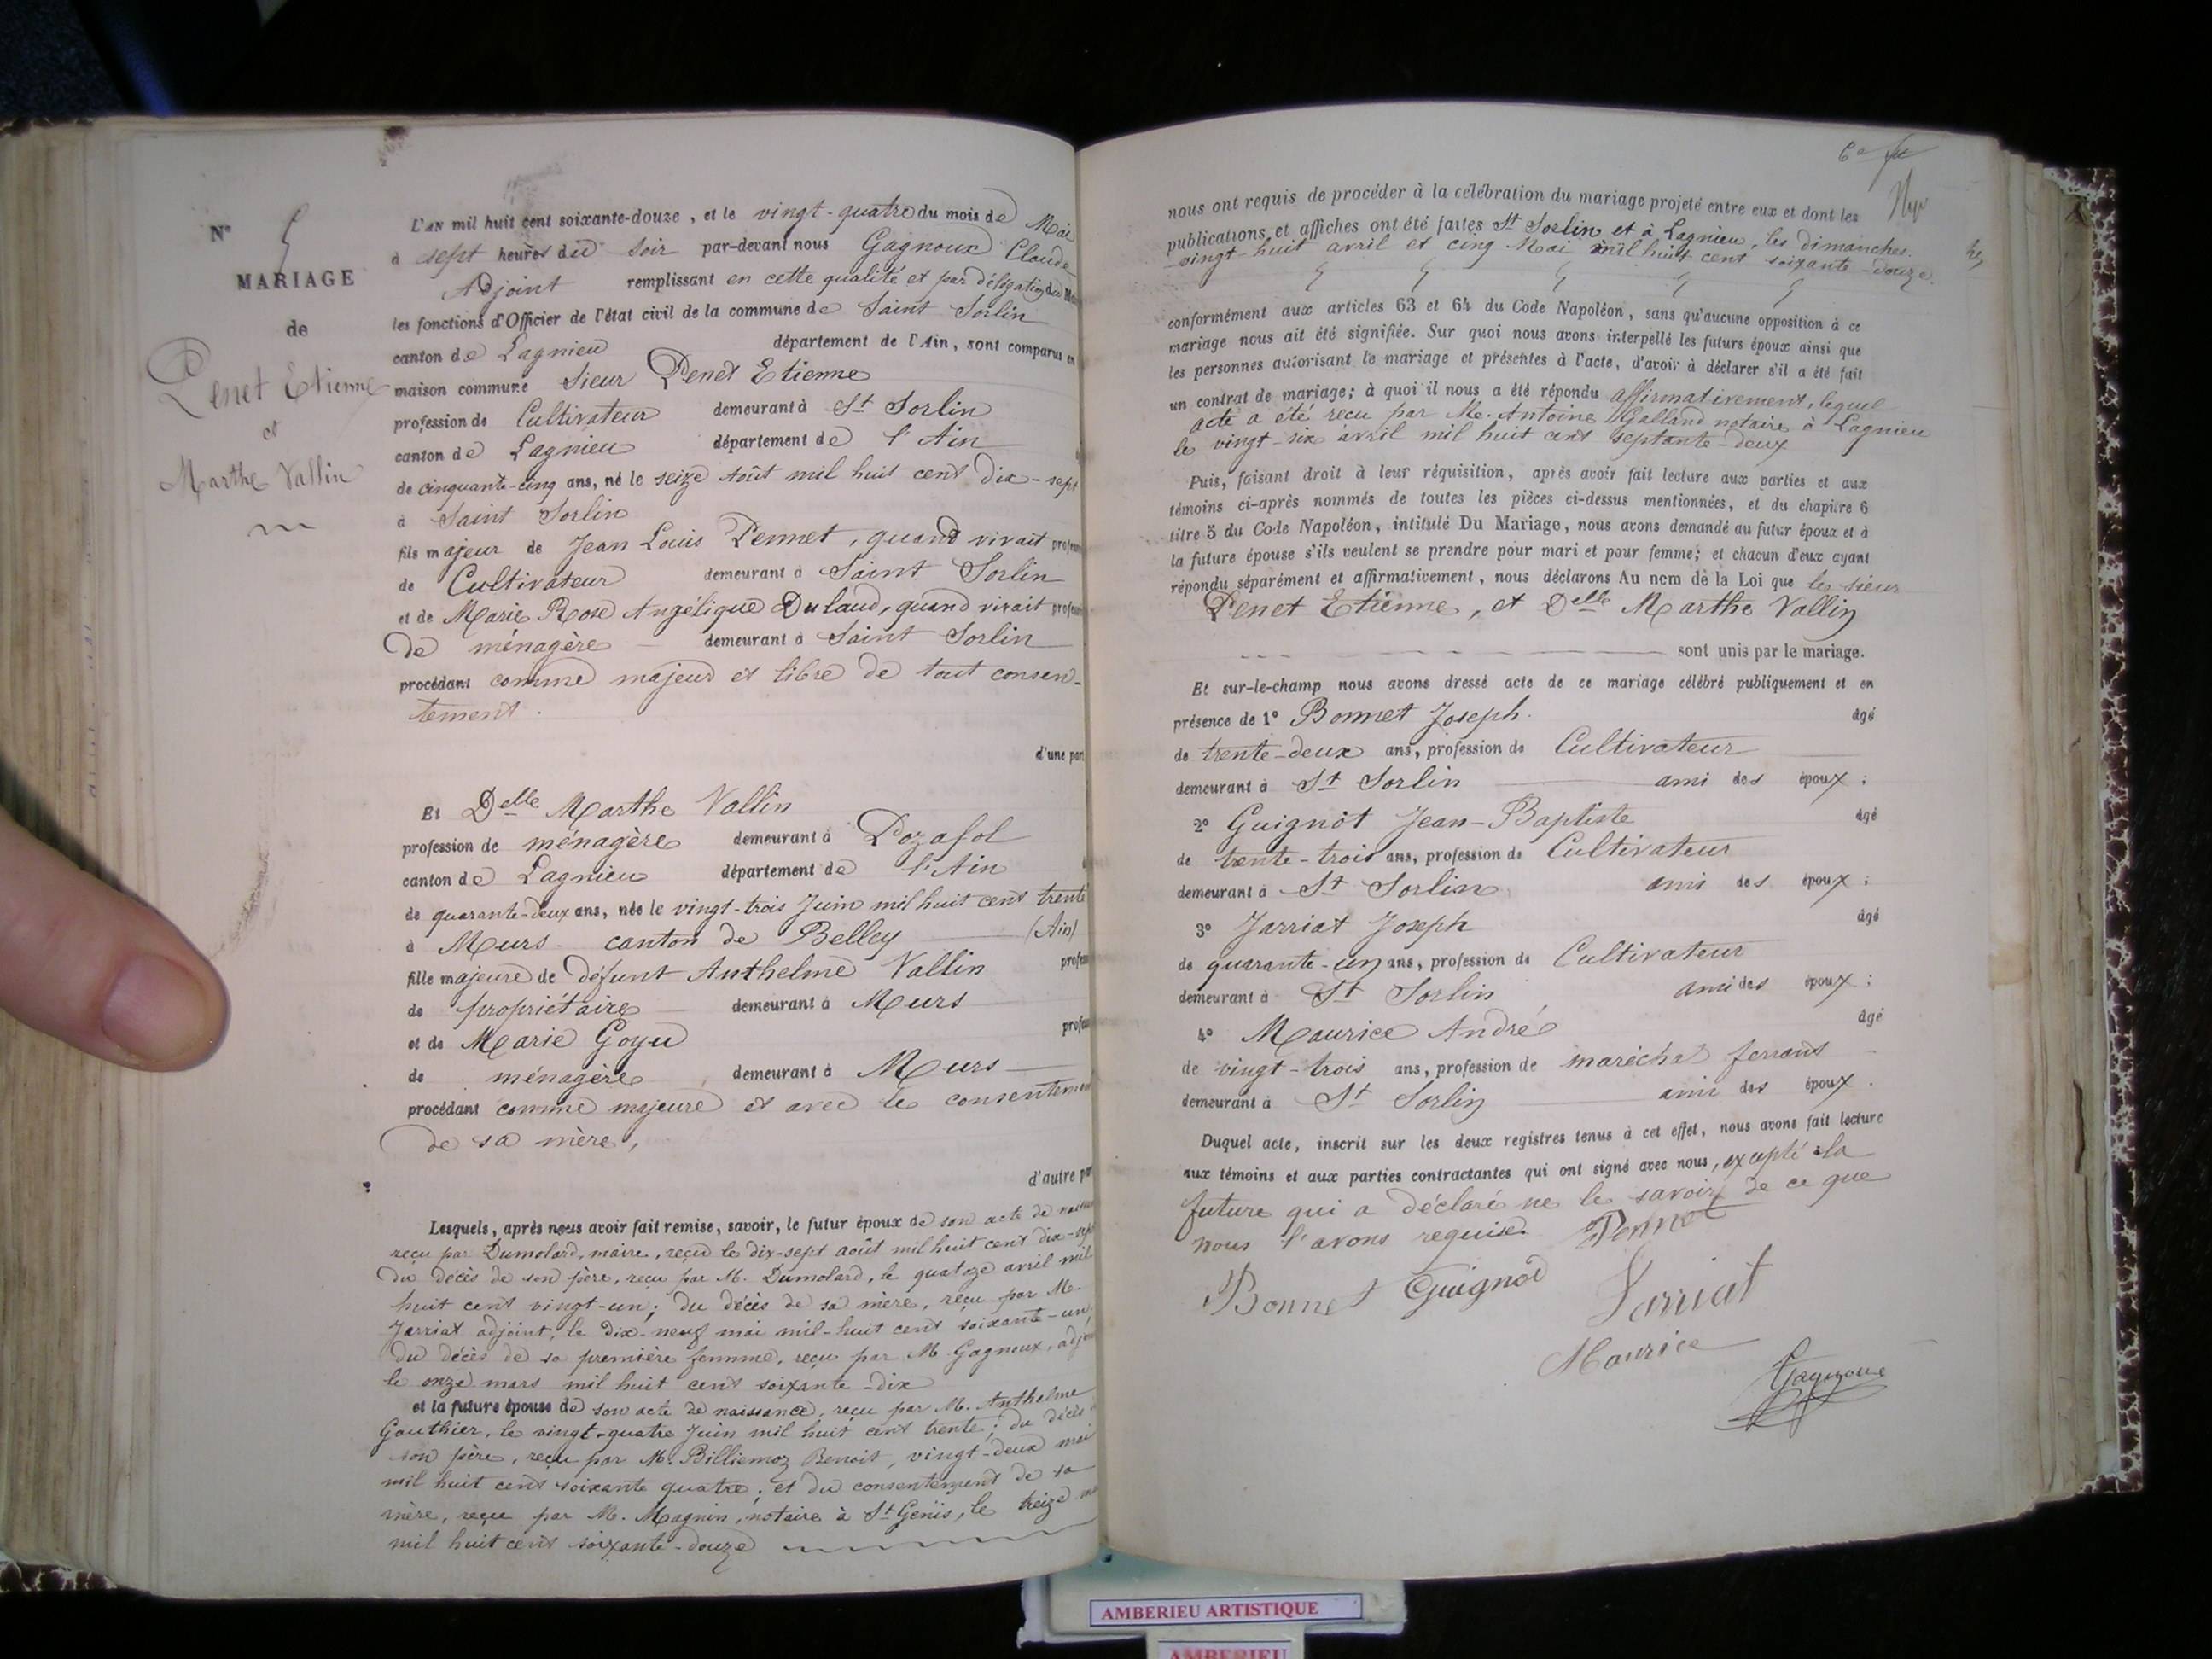 N° 5
MARIAGE
de
Penet Etienne
et
Marthe Vallin
L'AN mil huit cent soixante-douze, et le vingt-quatre du mois de Mai
à sept heures du soir par-devant nous Gagnoux Claude
Adjoint remplissant en cette qualité et par délégation du
les fonctions d'Officier de l'état civil de la commune de Saint Sorlin
canton de Lagnieu département de l'Ain, sont comparus en
maison commune Sieur Penet Etienne
profession de Cultivateur demeurant à St Sorlin
canton de Lagnieu département de l'Ain
de cinquante-cinq ans, né le seize Août mil huit cent dix-sept
à Saint Sorlin
fils majeur de Jean Louis Pennet, quand vivait
de Cultivateur demeurant à Saint Sorlin
et de Marie Rose Angélique Dulaud, quand vivait
de ménagère demeurant à Saint Sorlin
procédant comme majeur et libre de tout consen-
tement.
d'une par
Et Delle Marthe Vallin
profession de ménagère demeurant à Pozafol
canton de Lagnieu département de l'Ain
de quarante-deux ans, née le vingt-trois Juin mil huit cent trente
à Murs canton de Belley (Ain)
fille majeure de défunt Anthelme Vallin
de propriétaire demeurant à Murs
et de Marie Goyu
de ménagère demeurant à Murs
procédant comme majeure et avec le consentement
de sa mère,
d'autre par
Lesquels, après nous avoir fait remise, savoir, le futur époux de son acte de
reçu par Dumolard, maire, reçu le dix-sept août mil huit cent dix-sept
du décès de son père, reçu par M. Dumolard, le quatoze avril mil
huit cent vingt-un; du décès de sa mère, reçu par M.
Jarriat adjoint, le dix-neuf mai mil-huit cent soixante-un,
du décès de sa première femme, reçu par M. Gagneux, adj
le onze mars mil huit cent soixante-dix
et la future épouse de son acte de naissance, reçu par M. Anthelme
Gouthier, le vingt-quatre Juin mil huit cent trente; du décès
son père, reçu par M. Billiemoz Benoit, vingt-deux mai
mil huit cent soixante quatre; et du consentement de sa
mère, reçu par M. Magnin, notaire à St Genis, le treize
mil huit cent soixante-douze
nous ont requis de procéder à la célébration du mariage projeté entre eux et dont les
publications et affiches ont été faites St Sorlin et à Lagnieu, les dimanches
vingt-huit avril et cinq Mai mil huit cent soixante-douze.
conformément aux articles 63 et 64 du Code Napoléon, sans qu'aucune opposition à ce
mariage nous ait été signifiée. Sur quoi nous avons interpellé les futurs époux ainsi que
les personnes autorisant le mariage et présentes à l'acte, d'avoir à déclarer s'il a été fait
un contrat de mariage; à quoi il nous a été répondu affirmativement, lequel
acte a été reçu par M. Antoine Galland notaire à Lagnieu
le vingt-six avril mil huit cent septante-deux
Puis, faisant droit à leur réquisition, après avoir fait lecture aux parties et aux
témoins ci-après nommés de toutes les pièces ci-dessus mentionnées, et du chapitre 6
titre 5 du Code Napoléon, intitulé Du Mariage, nous avons demandé au futur époux et à
la future épouse s'ils veulent se prendre pour mari et pour femme; et chacun d'eux ayant
répondu séparément et affirmativement, nous déclarons Au nom de la Loi que le sieur
Penet Etienne, et Delle Marthe Vallin
sont unis par le mariage.
Et sur-le-champ nous avons dressé acte de ce mariage célébré publiquement et en
présence de 1° Bonnet Joseph. âgé
de trente-deux ans, profession de Cultivateur
demeurant à St Sorlin ami des époux;
2° Guignot Jean-Baptiste âgé
de trente-trois ans, profession de Cultivateur
demeurant à St Sorlin ami des époux;
3° Jarriat Joseph âgé
de quarante-un ans, profession de Cultivateur
demeurant à St Sorlin, ami des époux;
4° Maurice André âgé
de vingt-trois ans, profession de maréchal ferrant
demeurant à St Sorlin ami des époux.
Duquel acte, inscrit sur les deux registres tenus à cet effet, nous avons fait lecture
aux témoins et aux parties contractantes qui ont signé avec nous, excepté la
future qui a déclaré ne le savoir de ce que
nous l'avons requise Pennet
Bonnet Guignot Jarriat
Maurice
Gagnoux
AMBERIEU ARTISTIQUE
AMBERIEU